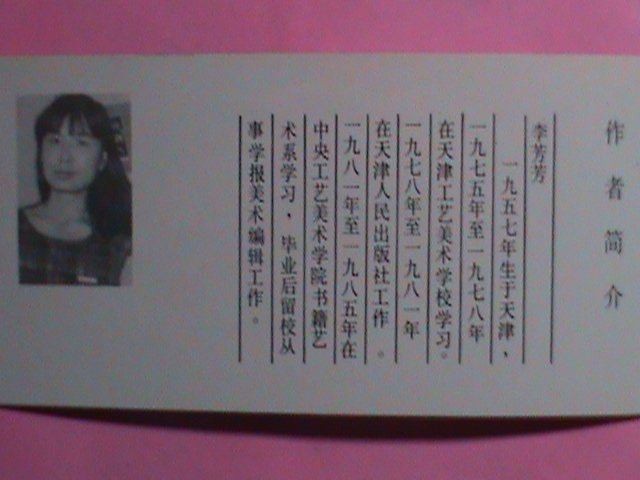 作者简介
李芳芳
一九五七年生于天津，
一九七五年至一九七八年
在天津工艺美术学校学习。
一九七八年至一九八一年
在天津人民出版社工作。
一九八一年至一九八五年在
中央工艺美术学院书籍艺
术系学习，毕业后留校从
事学报美术编辑工作。